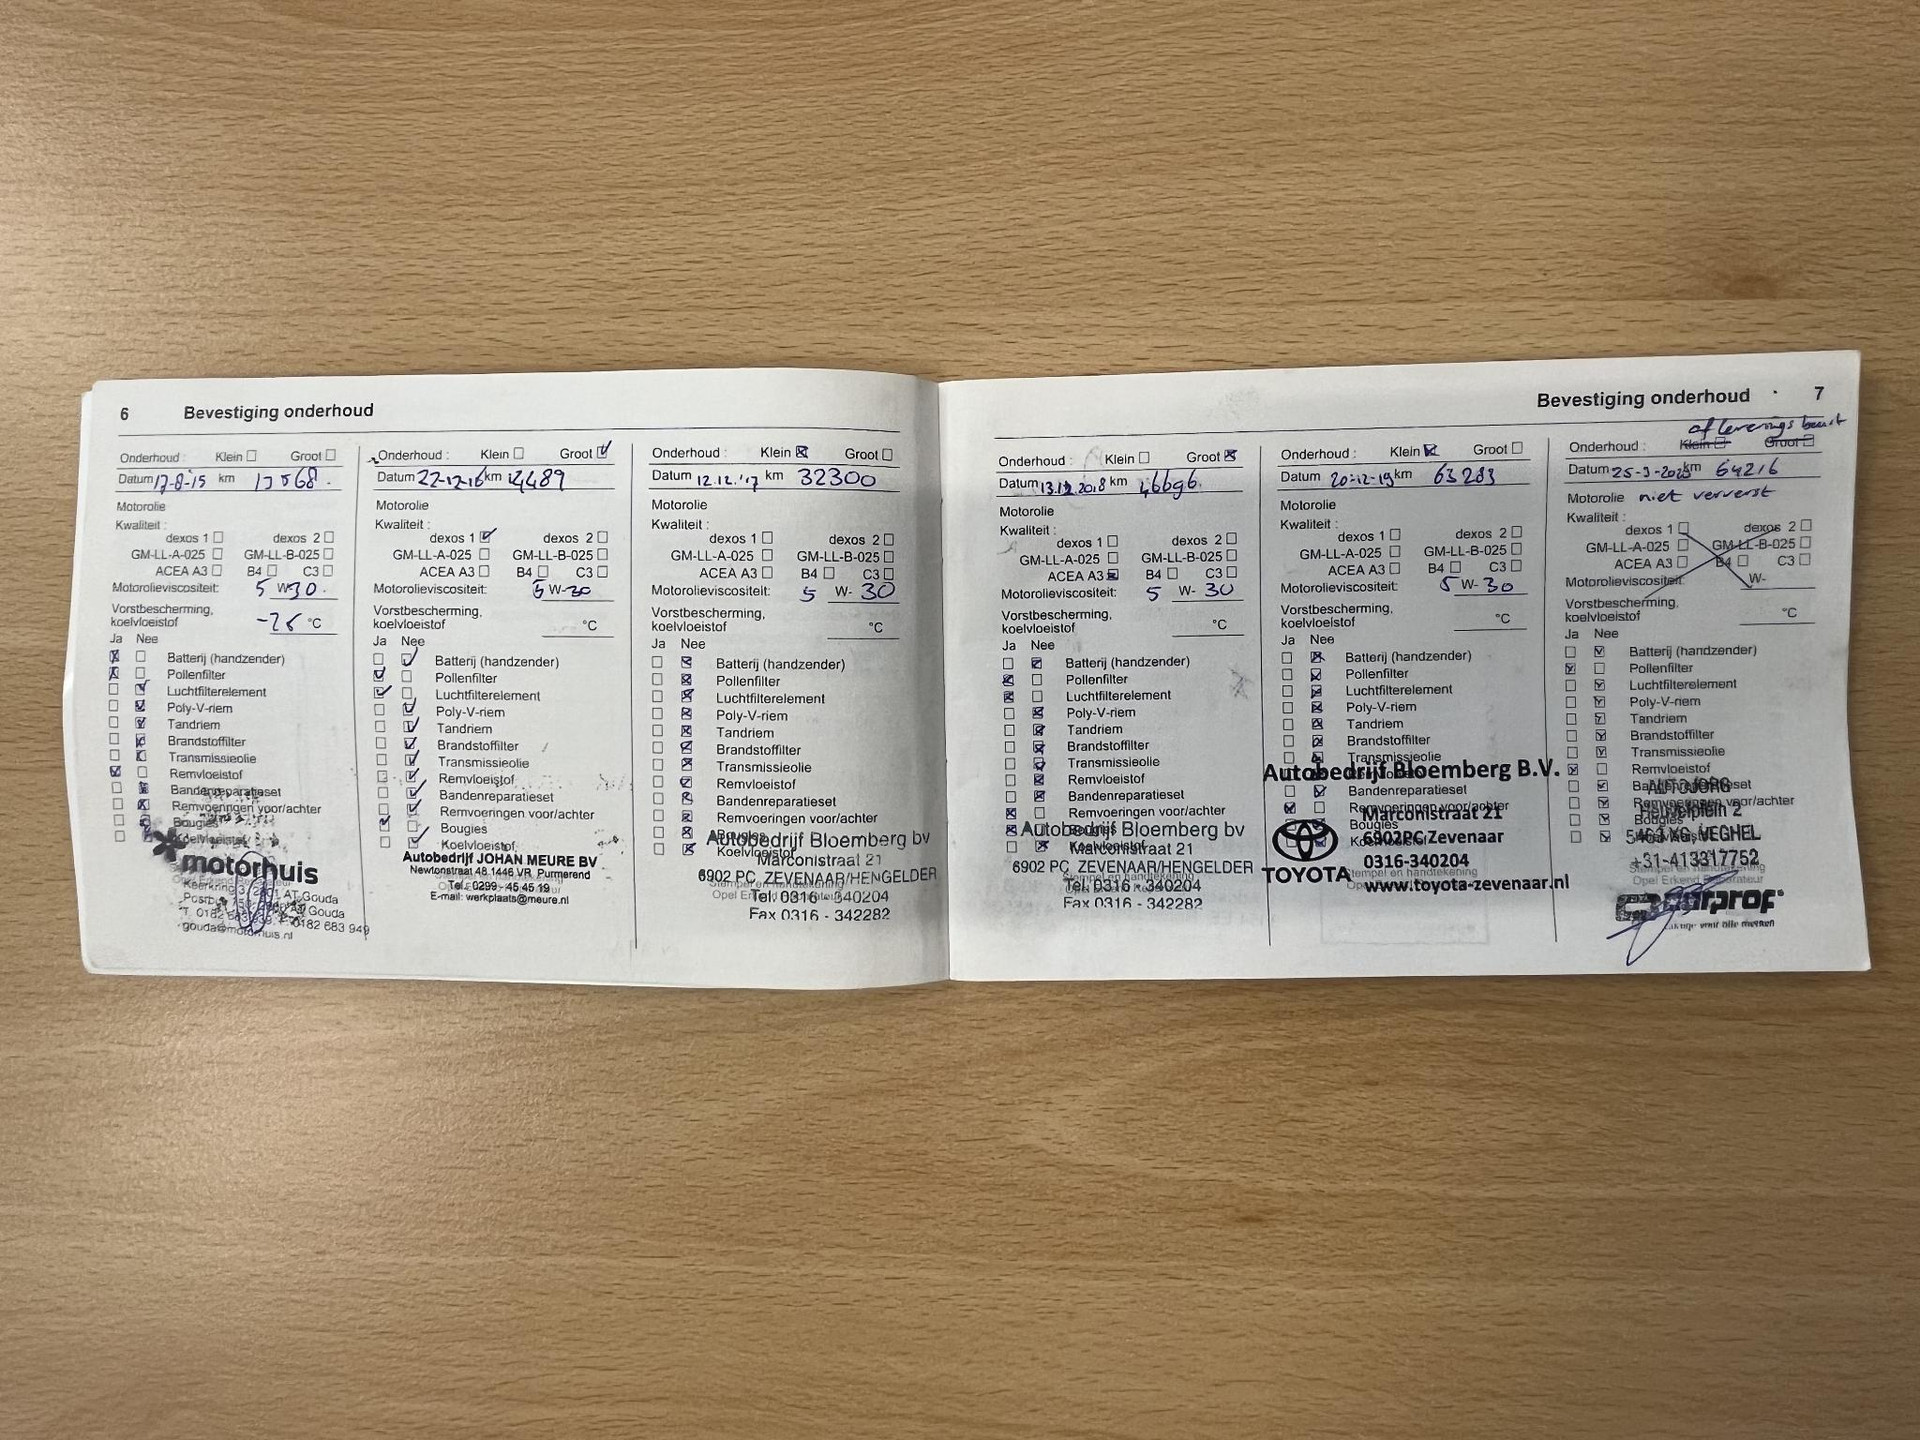 6 Bevestiging onderhoud
Onderhoud : Klein Groot
Datum 17-8-15 km
Motorolie
Kwaliteit :
dexos 1 dexos 2
GM-LL-A-025 GM-LL-B-025
ACEA A3 B4 C3
Motorolieviscositeit: 5 W-30.
Vorstbescherming,
koelvloeistof °C
Ja Nee
Batterij (handzender)
Pollenfilter
Luchtfilterelement
Poly-V-riem
Tandriem
Brandstoffilter
Transmissieolie
Remvloeistof
Bandenreparatieset
Remvoeringen voor/achter
Bougies
Koelvloeistof
motorhuis
gouda@motorhuis.nl
Onderhoud : Klein Groot
Datum 22-12-16 km
Motorolie
Kwaliteit :
dexos 1 dexos 2
GM-LL-A-025 GM-LL-B-025
ACEA A3 B4 C3
Motorolieviscositeit: 5 W-30
Vorstbescherming,
koelvloeistof °C
Ja Nee
Batterij (handzender)
Pollenfilter
Luchtfilterelement
Poly-V-riem
Tandriem
Brandstoffilter
Transmissieolie
Remvloeistof
Bandenreparatieset
Remvoeringen voor/achter
Bougies
Koelvloeistof
Autobedrijf JOHAN MEURE BV
Newtonstraat 48 1446 VR Purmerend
Tel. 0299 - 45 45 19
E-mail: werkplaats@meure.nl
Onderhoud : Klein Groot
Datum 12.12.'17 km 32300
Motorolie
Kwaliteit :
dexos 1 dexos 2
GM-LL-A-025 GM-LL-B-025
ACEA A3 B4 C3
Motorolieviscositeit: 5 W- 30
Vorstbescherming,
koelvloeistof °C
Ja Nee
Batterij (handzender)
Pollenfilter
Luchtfilterelement
Poly-V-riem
Tandriem
Brandstoffilter
Transmissieolie
Remvloeistof
Bandenreparatieset
Remvoeringen voor/achter
Bougies
Koelvloeistof
Autobedrijf Bloemberg bv
Marconistraat 21
6902 PC ZEVENAAR/HENGELDER
Tel. 0316 - 340204
Fax 0316 - 342282
Bevestiging onderhoud 7
Onderhoud : Klein Groot
Datum 13.12.2018 km 46696
Motorolie
Kwaliteit :
dexos 1 dexos 2
GM-LL-A-025 GM-LL-B-025
ACEA A3 B4 C3
Motorolieviscositeit: 5 W- 30
Vorstbescherming,
koelvloeistof °C
Ja Nee
Batterij (handzender)
Pollenfilter
Luchtfilterelement
Poly-V-riem
Tandriem
Brandstoffilter
Transmissieolie
Remvloeistof
Bandenreparatieset
Remvoeringen voor/achter
Bougies
Koelvloeistof
Autobedrijf Bloemberg bv
Marconistraat 21
6902 PC ZEVENAAR/HENGELDER
Stempel en handtekening
Tel. 0316 - 340204
Fax 0316 - 342282
Onderhoud : Klein Groot
Datum 20-12-19 km 63283
Motorolie
Kwaliteit :
dexos 1 dexos 2
GM-LL-A-025 GM-LL-B-025
ACEA A3 B4 C3
Motorolieviscositeit: 5 W- 30
Vorstbescherming,
koelvloeistof °C
Ja Nee
Batterij (handzender)
Pollenfilter
Luchtfilterelement
Poly-V-riem
Tandriem
Brandstoffilter
Transmissieolie
Autobedrijf Bloemberg B.V.
Bandenreparatieset
Remvoeringen voor/achter
Marconistraat 21
Bougies
6902PC Zevenaar
0316-340204
TOYOTA
Stempel en handtekening
www.toyota-zevenaar.nl
afleverings beurt
Onderhoud : Klein Groot
Datum 25-3-2020 km 64216
Motorolie niet ververst
Kwaliteit :
dexos 1 dexos 2
GM-LL-A-025 GM-LL-B-025
ACEA A3 B4 C3
Motorolieviscositeit: W-
Vorstbescherming,
koelvloeistof °C
Ja Nee
Batterij (handzender)
Pollenfilter
Luchtfilterelement
Poly-V-riem
Tandriem
Brandstoffilter
Transmissieolie
Remvloeistof
Bandenreparatieset
Remvoeringen voor/achter
Heuvelplein 2
Bougies
VEGHEL
+31-413317752
Opel Erkend Reparateur